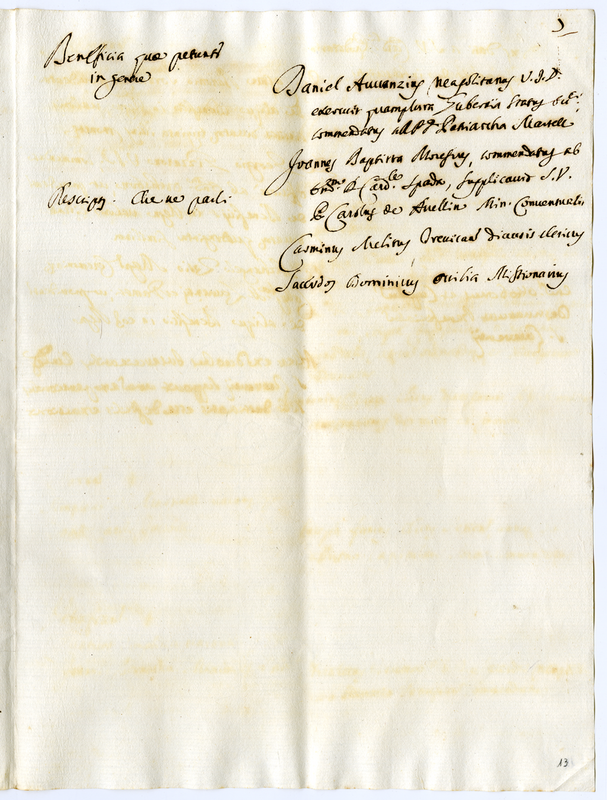 Beneficia quæ petunt
in genere
Rescript. Che ne parli
Daniel Avvanzius Neapolitanus V.I.D.
exercuit quamplura Gubernia Status
commendatus Patriarcha Martell
Joannes Baptista commendatus ab
Card.le Spada, supplicavit S.V.
P. Carolus de Avellin Min. Conventualis
Carminus Melitus Trevican Diocesis clericus
Sacerdos Dominicus Missionarius
13